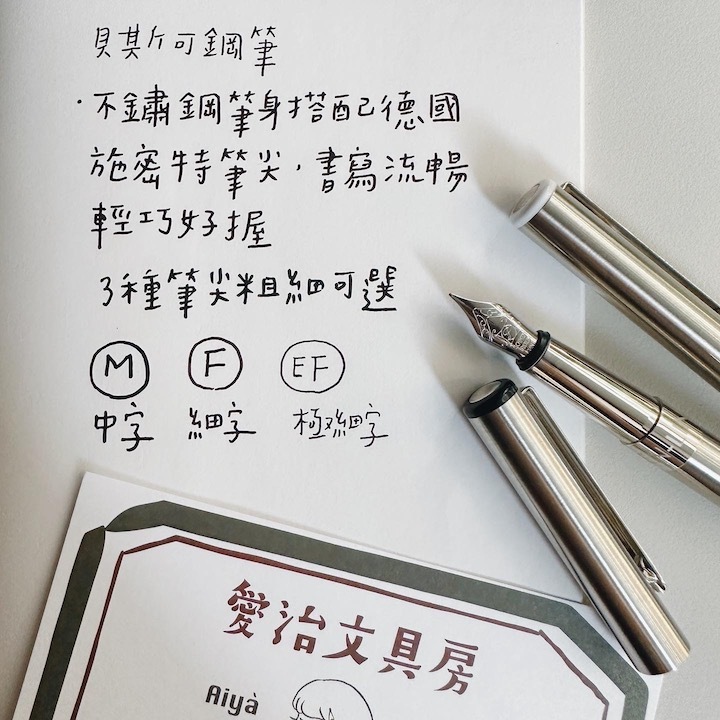 貝其斤可鋼筆
·不鏽鋼筆身搭配德國
施密特筆尖，書寫流暢
輕巧好握
3種筆尖粗細可選
M F EF
中字 細字 極細字
愛治文具房
Aiyà